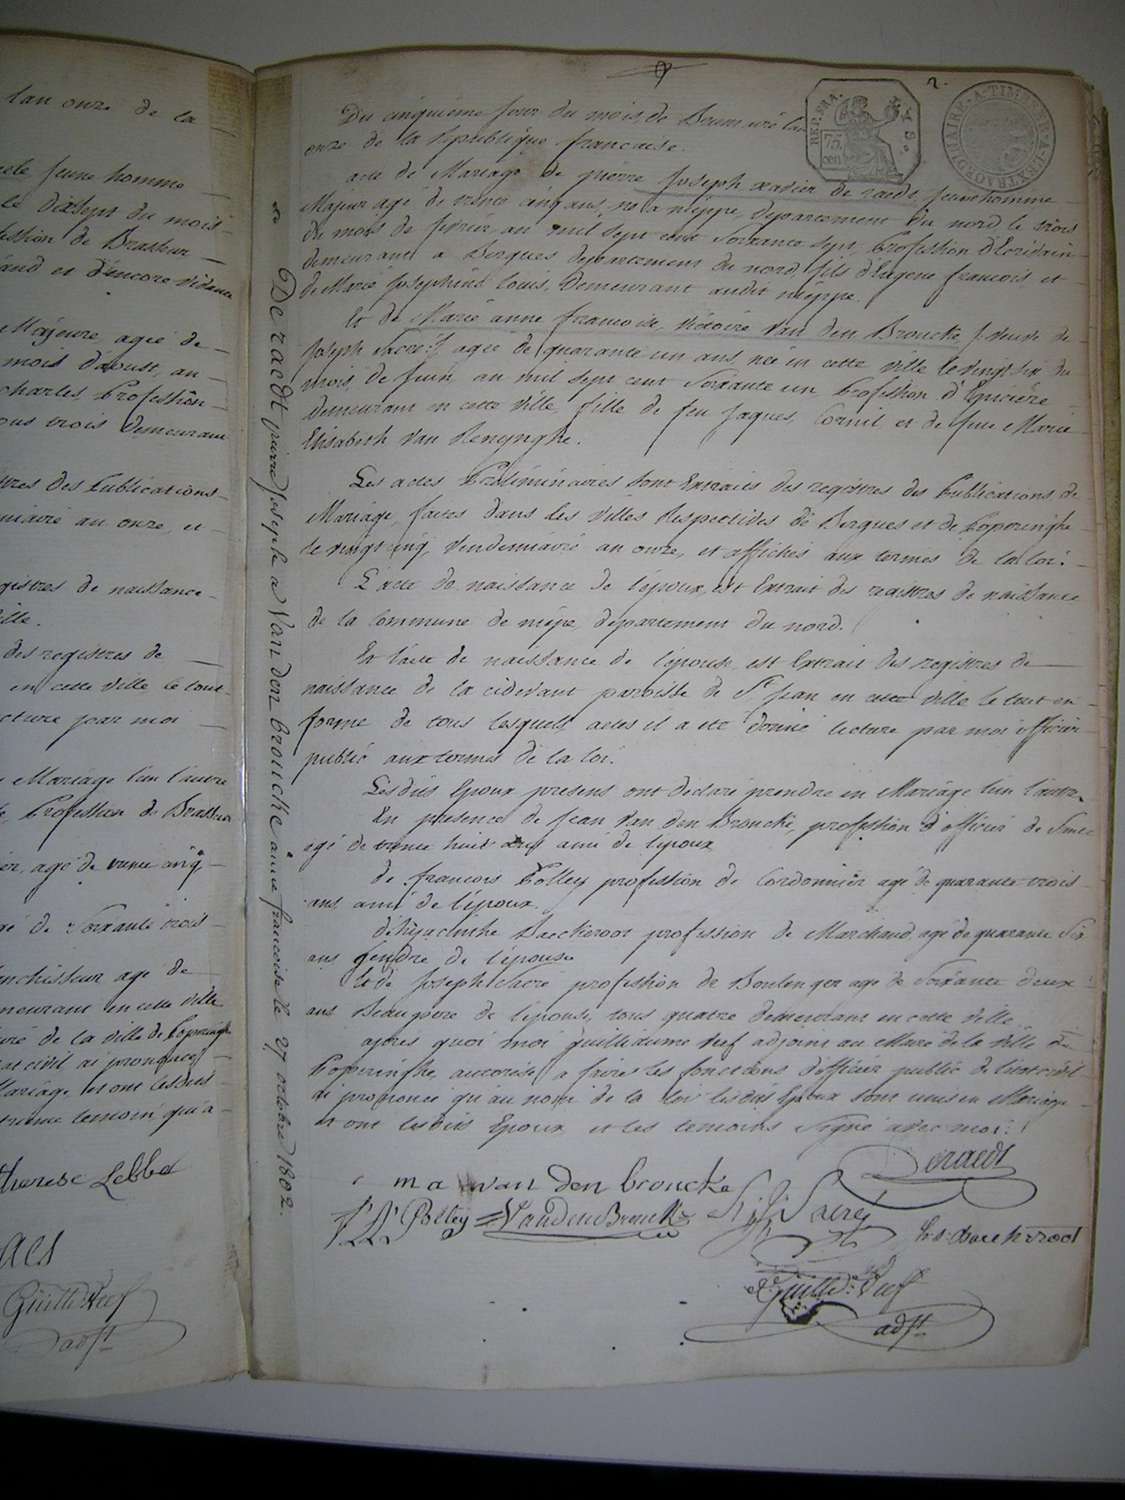 lan onze de la
jeune homme
le dixsept du mois
Profession de Brasseur
Majeure, agée de
mois d'aoust, an
charles Profession
tous trois demeurant
des Publications
an onze, et
registres de naissance
ville.
des registres de
en cette ville le tout
lecture par moi
Mariage l'un l'autre
Profession de Brasseur
agé de
agé de Soixante trois
agé de
demeurant en cette ville
de la ville de Poperinghe
civil ai prononcé
Mariage, et ont lesdits
temoin qui a
therese Lebbe
Guille: Neef
adjt
De raedt pierre Joseph a Van den broucke anne francoise le 27 octobre 1802.
2.
REP. FRA.
75
cen
A TIMBRE
EXTRAORDINAIRE
Du cinquieme jour du mois de Brumaire lan
onze de la Republique francaise.
acte de Mariage de pierre Joseph xavier de raedt, jeune homme
Majeur agé de trente cinq ans, né a niéppe, departement du nord le trois
du mois de fevrier an mil sept cent Soixante Sept, Profession d'Ecrivain
demeurant a Bergues departement du nord, fils d'Eugene francois et
de Marie Josephine Louis, Demeurant audit niéppe.
Et de Marie anne francoise, victoire Van den Broucke, veuve de
Joseph Sacré, agée de quarante un ans, née en cette ville le vingt six du
mois de juin an mil sept cent Soixante un Profession d'Epiciére
demeurant en cette ville, fille de feu Jaques, Cornil et de feue Marie
Elisabeth Van Renynghe.
Les actes Préliminaires sont Extraits des registres des Publications de
Mariage, faites dans les villes Respectives de Bergues et de Poperinghe
le vingt cinq Vendemiaire an onze, et affichés aux termes de la loi.
L'acte de naissance de l'époux, est Extrait des registres de naissance
de la commune de niépe, departement du nord.
Et l'acte de naissance de l'épouse est Extrait des registres de
naissance de la cidevant paroisse de St Jean en cette ville le tout en
forme de tous lesquels actes il a été donné lecture par moi officier
public aux termes de la loi.
Lesdits Epoux presens ont declaré prendre en Mariage l'un l'autre
En presence de Jean Van den Broucke, profession d'officier de Santé
agé de trente huit ans ami de lépoux
de francois Polley profession de Cordonnier agé de quarante trois
ans ami de l'époux.
d'hijacinthe Baeckeroot profession de Marchand, agé de quarante Six
ans Gendre de l'épouse
et de Joseph Sacré profession de Boulenger agé de Soixante deux
ans Beaupere de l'épouse, tous quatre demeurant en cette ville
apres quoi moi Guilliaume Neef adjoint au Maire de la ville de
Poperinghe, autorisé a faires les fonctions d'officier public de l'etat civil
ai prononcé qu'au nom de la loi lesdits Epoux sont unis en Mariage
et ont lesdits Epoux et les temoins Signé avec moi.
Deraedt
m a van den broucke
Polley VandenBroucke J. Sacré
Guille: Neef
adjt